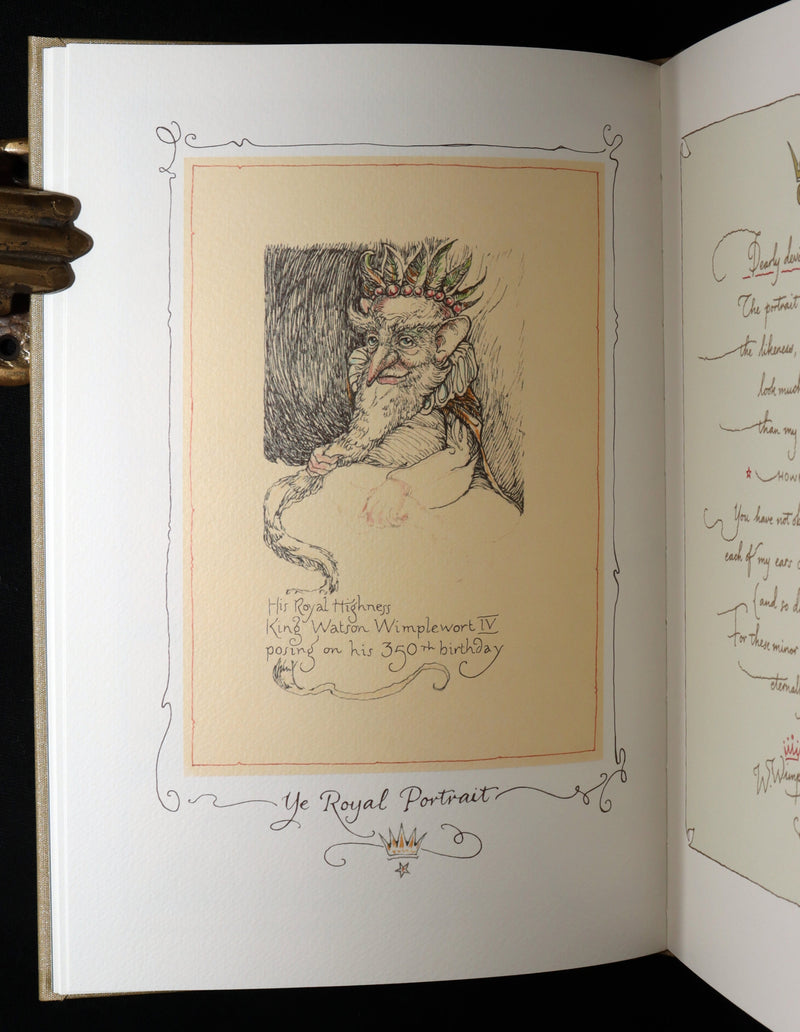 His Royal Highness
King Watson Wimplewort IV
posing on his 350th birthday
Ye Royal Portrait
Dearly
The portrait
the likeness,
look much
than my
HOW
You have not
each of my ears
(and so
For these minor